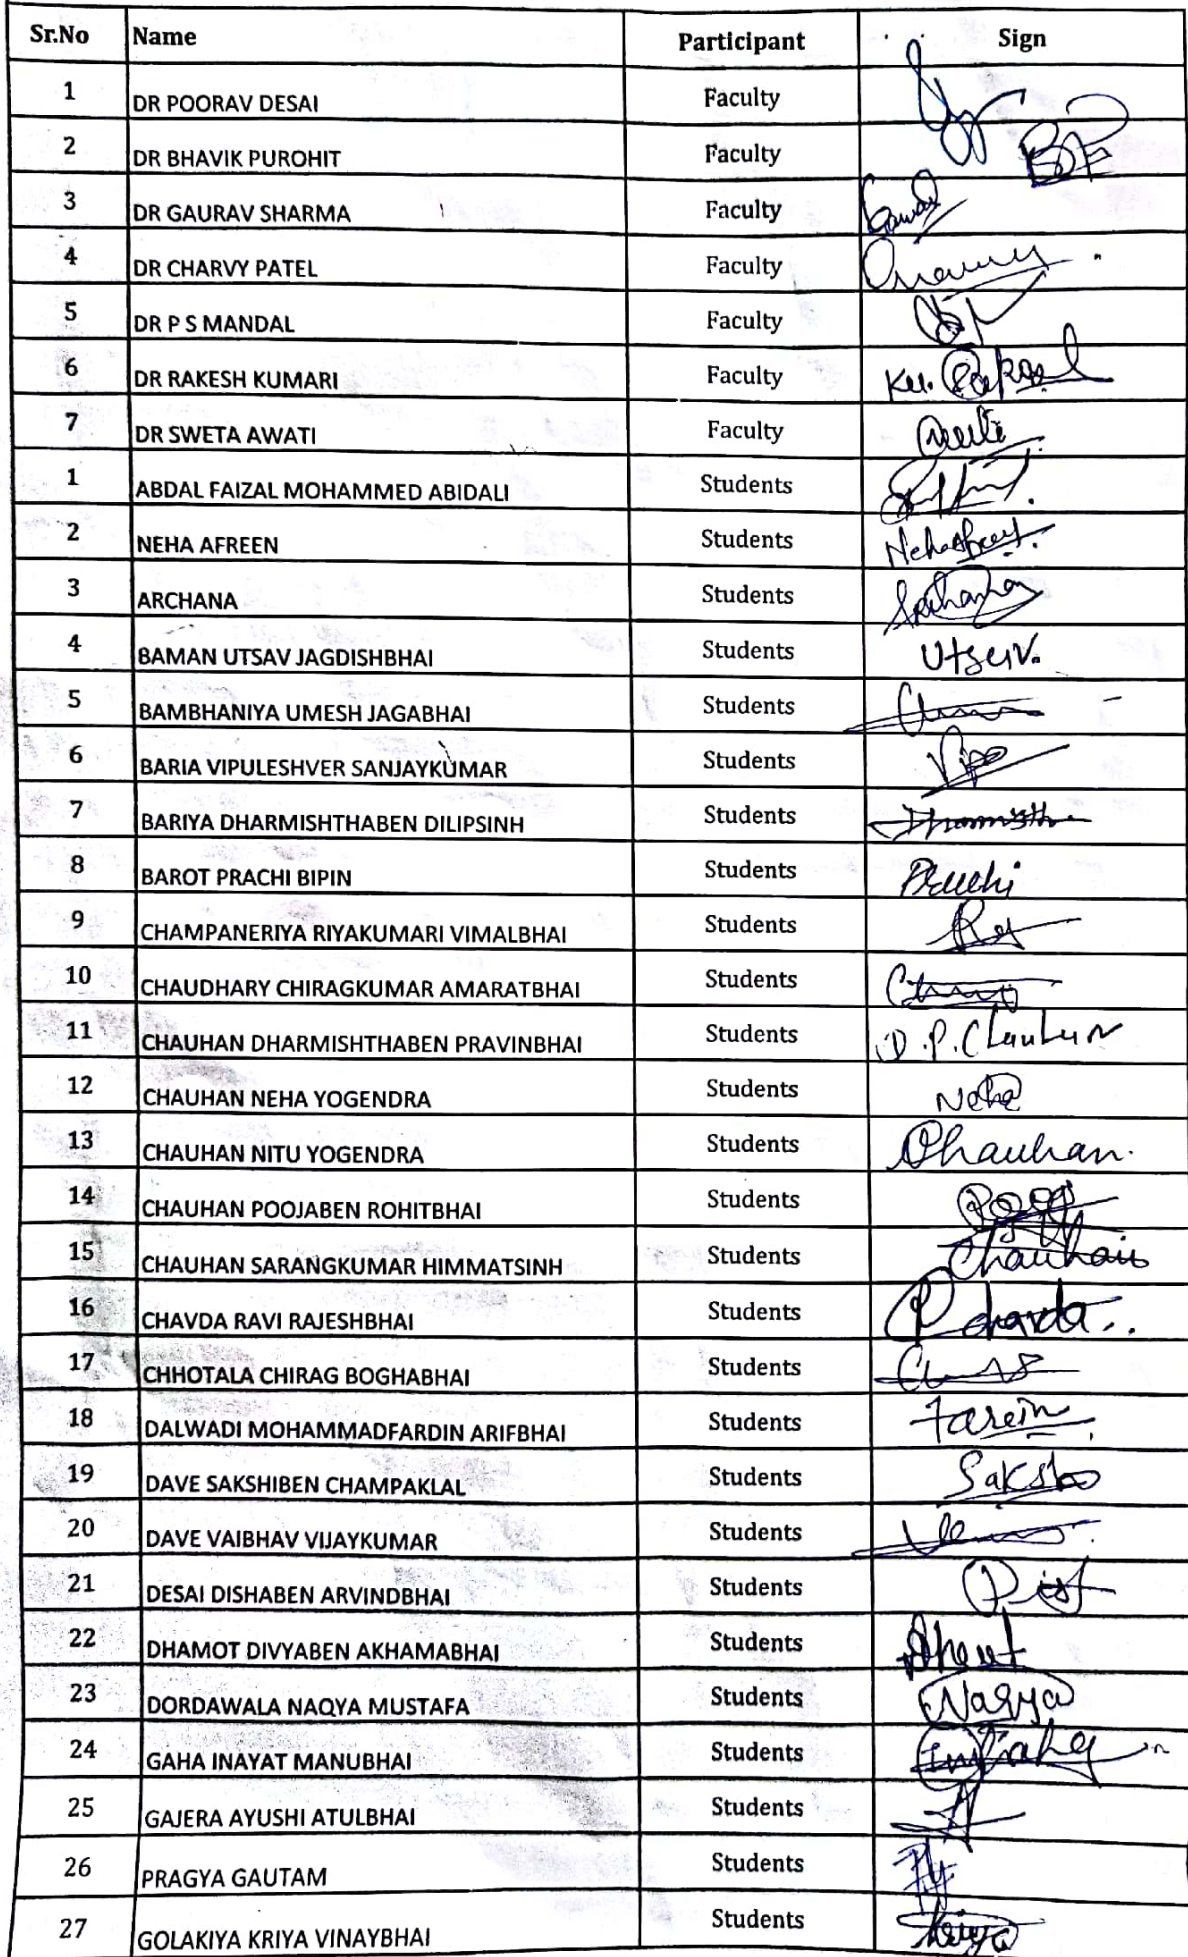 Sr.No Name Participant Sign
1 DR POORAV DESAI Faculty
2 DR BHAVIK PUROHIT Faculty
3 DR GAURAV SHARMA Faculty
4 DR CHARVY PATEL Faculty
5 DR P S MANDAL Faculty
6 DR RAKESH KUMARI Faculty
7 DR SWETA AWATI Faculty
1 ABDAL FAIZAL MOHAMMED ABIDALI Students
2 NEHA AFREEN Students
3 ARCHANA Students
4 BAMAN UTSAV JAGDISHBHAI Students Utsav.
5 BAMBHANIYA UMESH JAGABHAI Students
6 BARIA VIPULESHVER SANJAYKUMAR Students
7 BARIYA DHARMISHTHABEN DILIPSINH Students
8 BAROT PRACHI BIPIN Students Prachi
9 CHAMPANERIYA RIYAKUMARI VIMALBHAI Students
10 CHAUDHARY CHIRAGKUMAR AMARATBHAI Students
11 CHAUHAN DHARMISHTHABEN PRAVINBHAI Students D.P.Chauhan
12 CHAUHAN NEHA YOGENDRA Students Neha
13 CHAUHAN NITU YOGENDRA Students Chauhan.
14 CHAUHAN POOJABEN ROHITBHAI Students
15 CHAUHAN SARANGKUMAR HIMMATSINH Students Chauhan
16 CHAVDA RAVI RAJESHBHAI Students
17 CHHOTALA CHIRAG BOGHABHAI Students
18 DALWADI MOHAMMADFARDIN ARIFBHAI Students
19 DAVE SAKSHIBEN CHAMPAKLAL Students
20 DAVE VAIBHAV VIJAYKUMAR Students
21 DESAI DISHABEN ARVINDBHAI Students
22 DHAMOT DIVYABEN AKHAMABHAI Students
23 DORDAWALA NAQYA MUSTAFA Students Naqya
24 GAHA INAYAT MANUBHAI Students
25 GAJERA AYUSHI ATULBHAI Students
26 PRAGYA GAUTAM Students
27 GOLAKIYA KRIYA VINAYBHAI Students Kriya